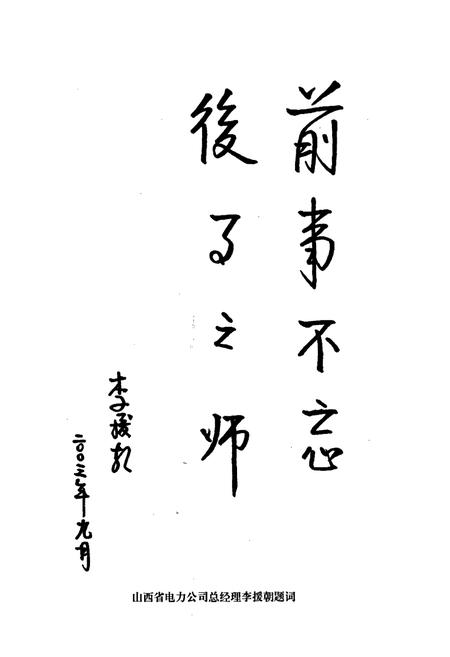 前事不忘
後事之师
李援朝
二〇〇三年元月
山西省电力公司总经理李援朝题词